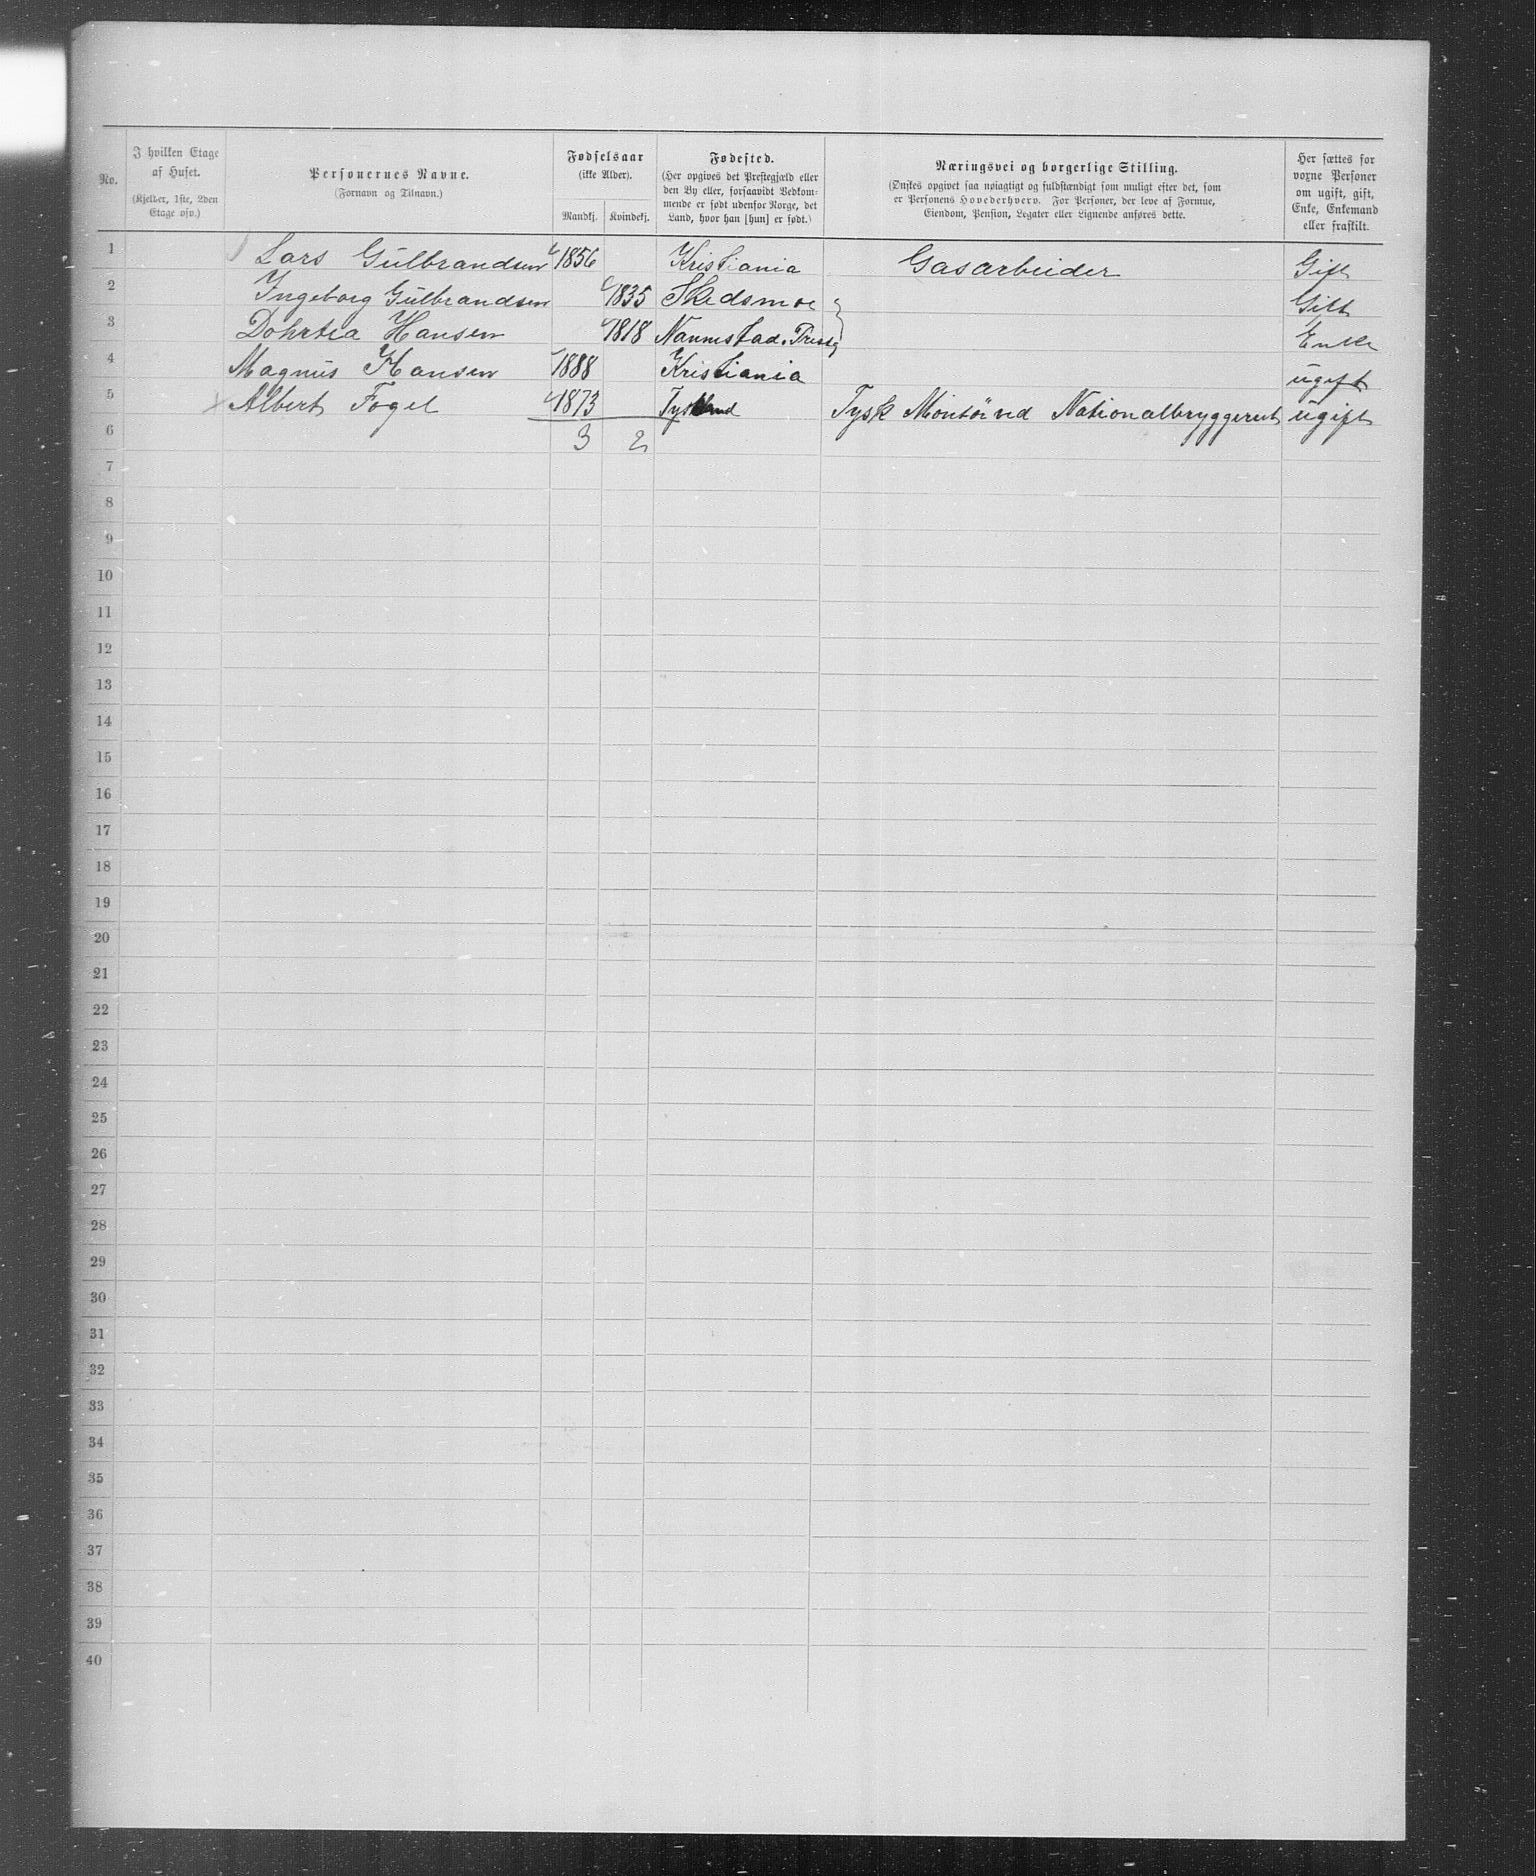 No.
I hvilken Etage
af Huset.
(Kjelder, 1ste, 2den
Etage osv.)
Personernes Navne.
(Fornavn og Tilnavn.)
Fødselsaar
(ikke Alder).
Mandkj. Kvindekj.
Fødested.
(Her opgives det Prestegjæld eller
den By eller, forsaavidt Vedkom-
mende er født udenfor Norge, det
Land, hvor han [hun] er født.)
Næringsvei og borgerlige Stilling.
(Ønskes opgivet saa nøiagtigt og fuldstændigt som muligt efter det, som
er Personens Hovederhverv. For Personer, der leve af Formue,
Eiendom, Pension, Legater eller Lignende anføres dette.
Her sættes for
voxne Personer
om ugift, gift,
Enke, Enkemand
eller fraskilt.
1 Lars Gulbrandsen 1856 Kristiania Gasarbeider Gift
2 Ingeborg Gulbrandsen 1835 Skedsmoe Gift
3 Dohrtea Hansen 1818 Enke
4 Magnus Hansen 1888 Kristiania ugift
5 Albert Fogel 1873 Tyskland Tysk Montör ved Nationalbryggeriet ugift
6 3 2
7
8
9
10
11
12
13
14
15
16
17
18
19
20
21
22
23
24
25
26
27
28
29
30
31
32
33
34
35
36
37
38
39
40